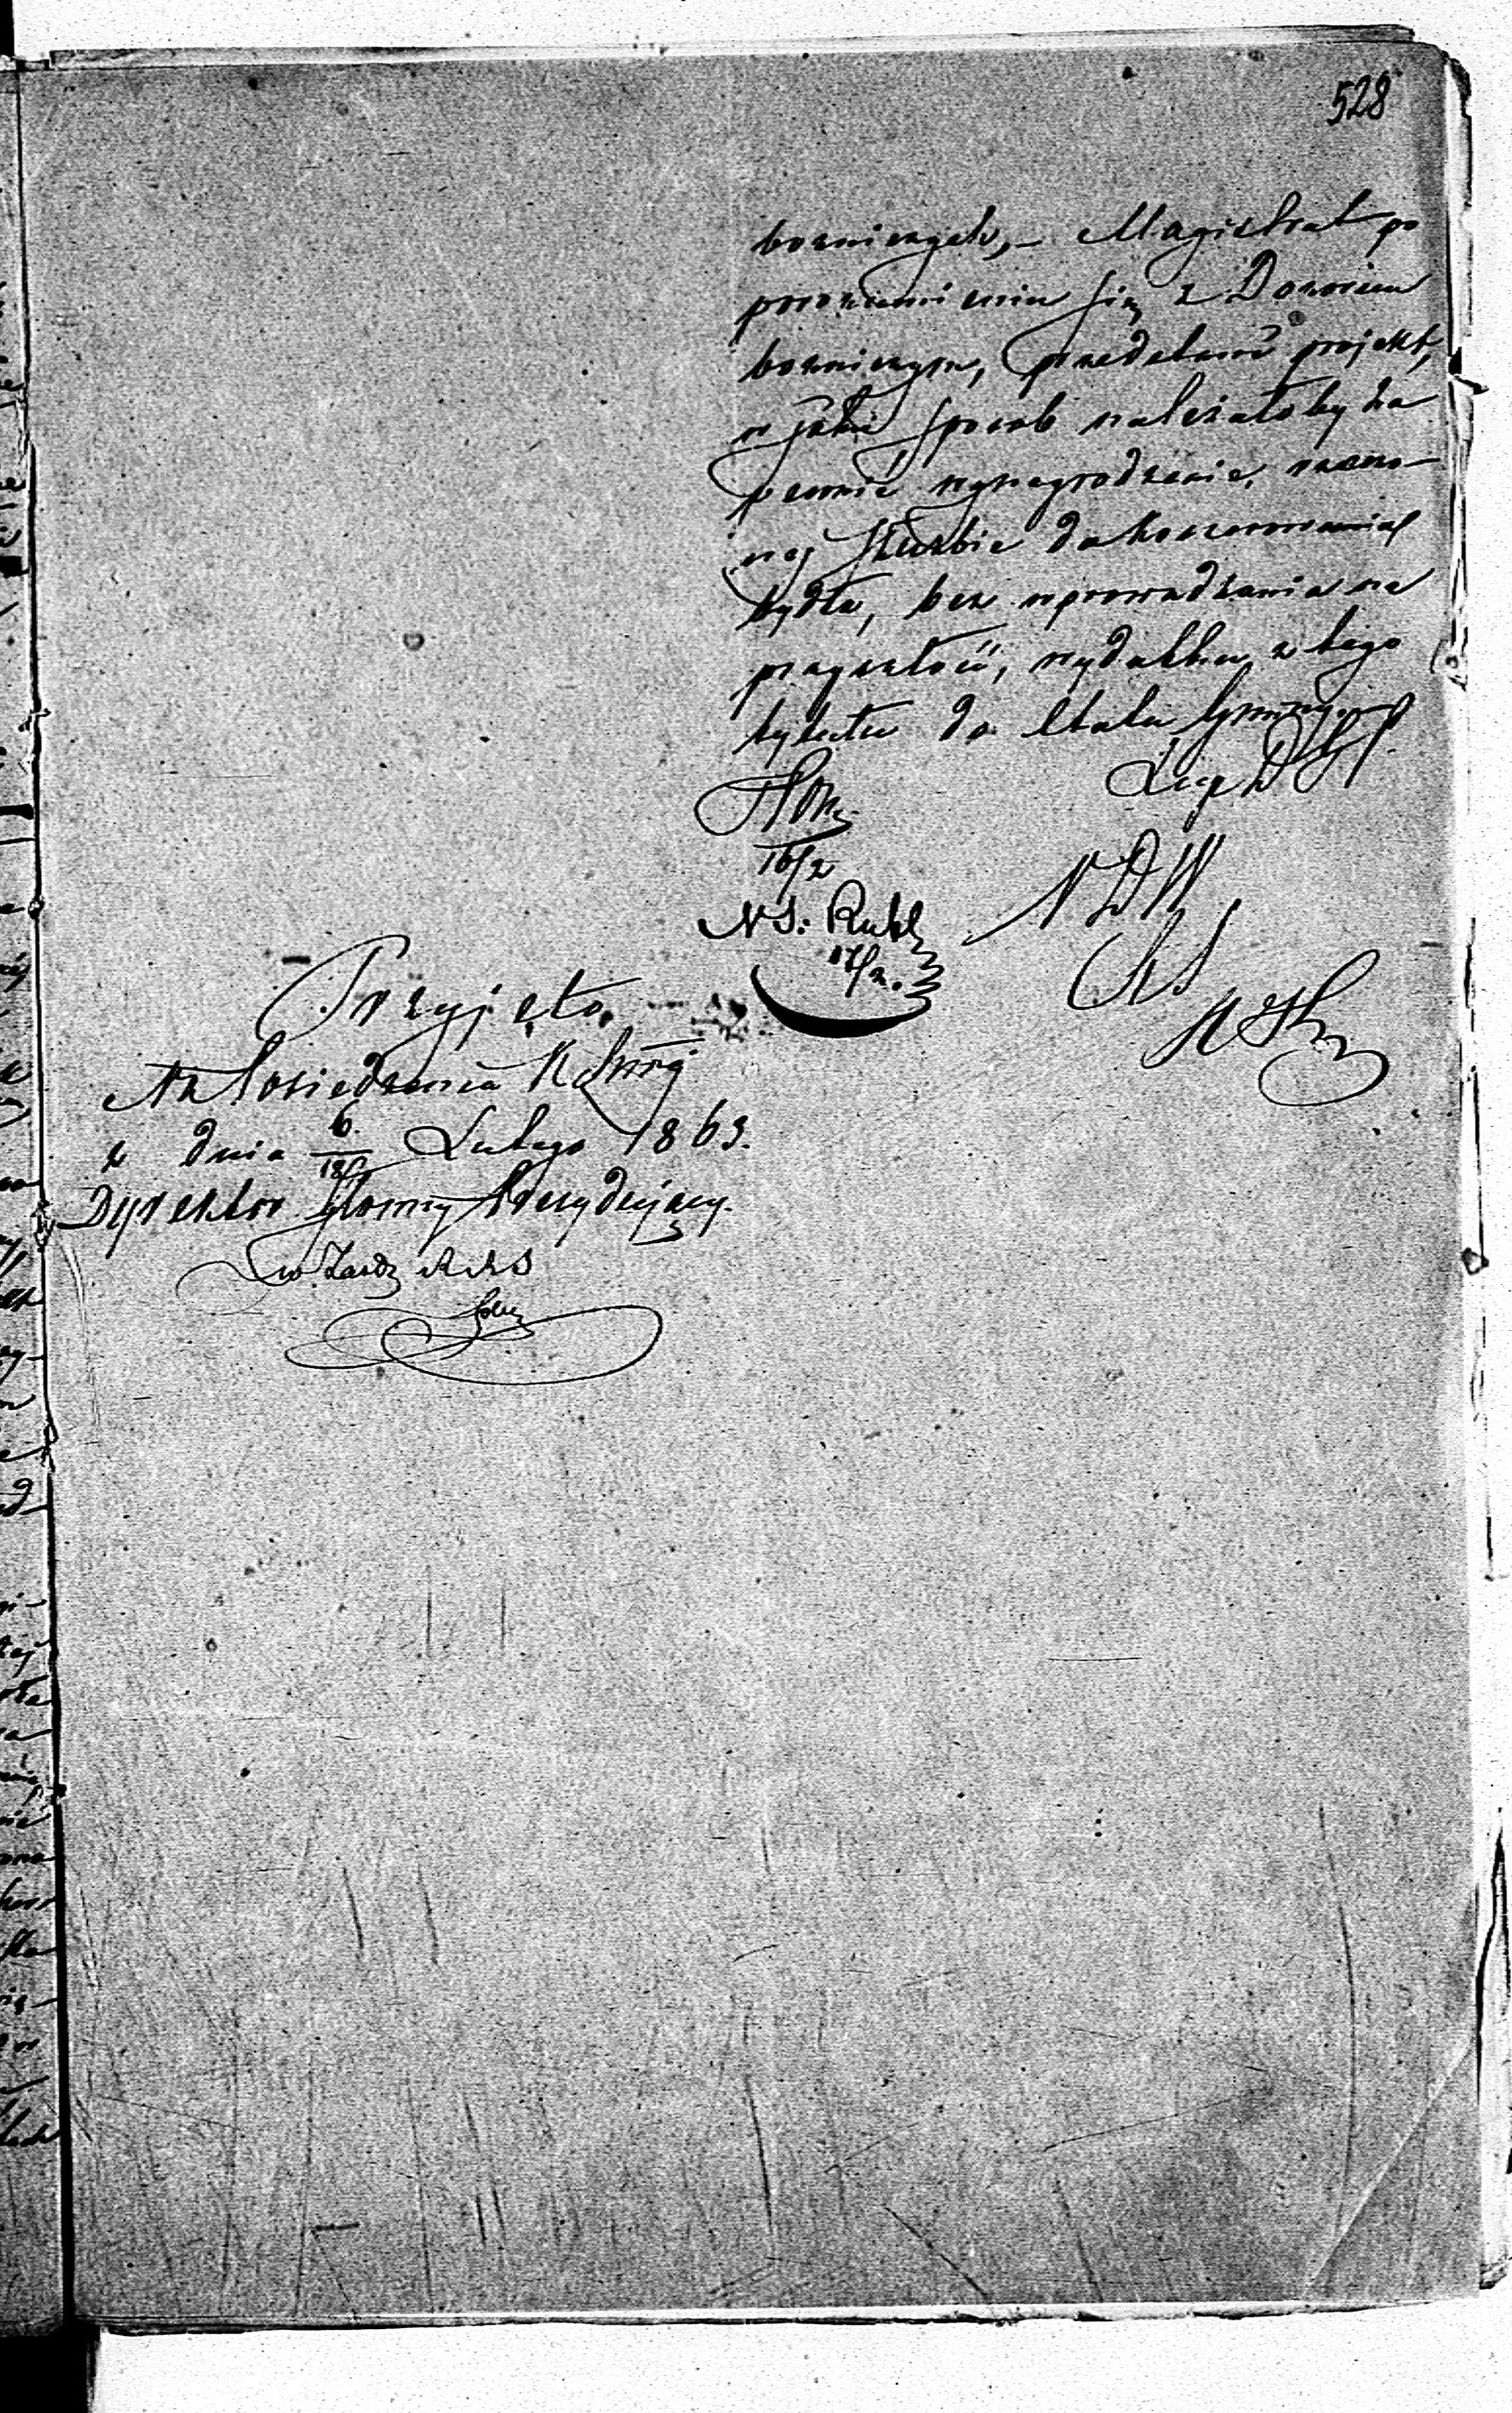 528
bożniczych, – Magistrat po
porozumieniu się z Dozorem
bożniczym, przedstawi projekt,
w jaki sposób należałoby za
pewnić wynagrodzenie, rzeczo-
nej służbie do koszerowania
bydła, bez wprowadzania na
przyszłość, wydatku z tego
tytułu do Etatu
16/2
N S:
17/2.
N D W
Przyjęto.
Na Posiedzeniu
z dnia 6/18 Lutego 1863.
Dyrektor Główny Prezydujący.